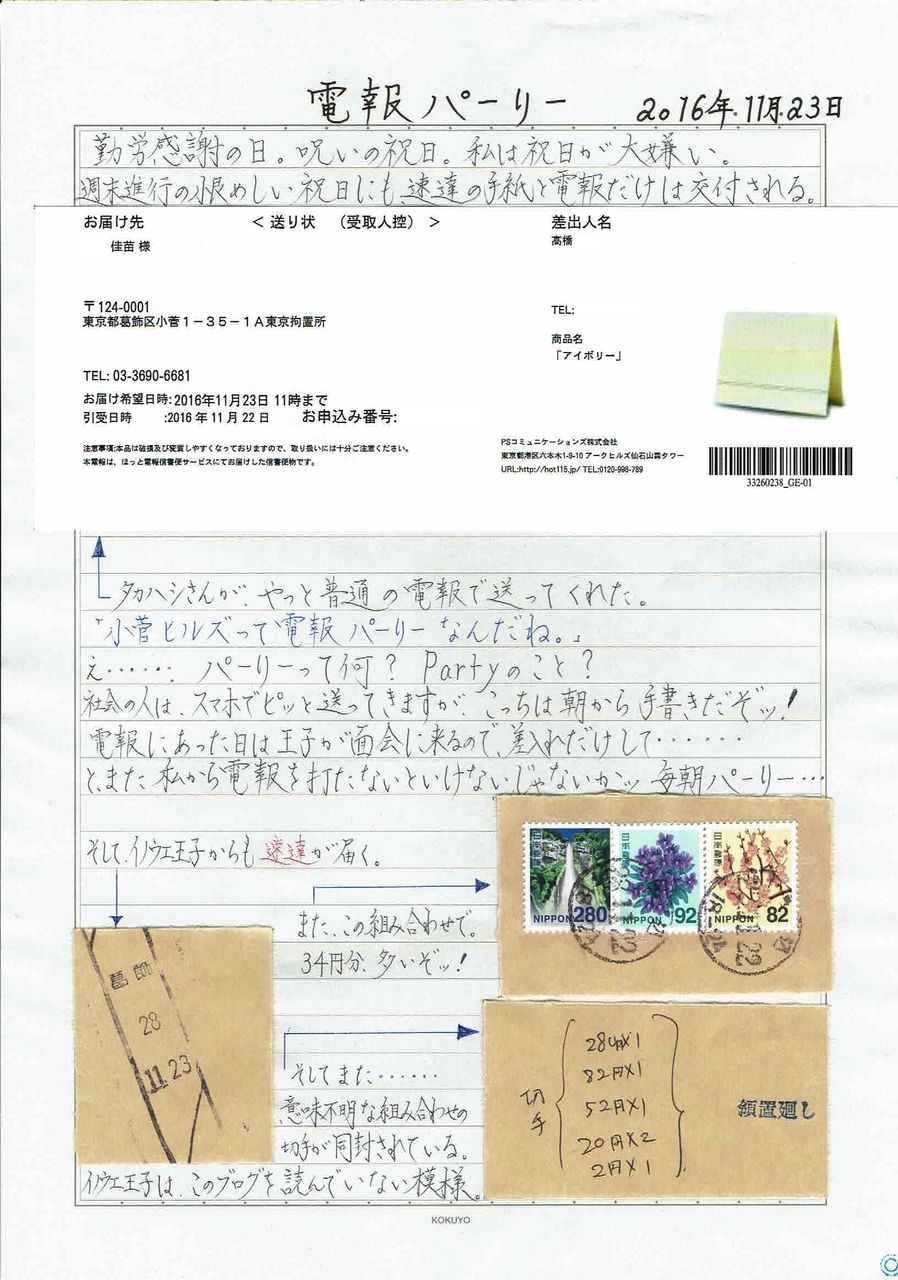 電報パーリー 2016年.11月.23日
勤労感謝の日。呪いの祝日。私は祝日が大嫌い。
週末進行の恨めしい祝日にも速達の手紙と電報だけは交付される。
お届け先 ＜送り状 （受取人控）＞ 差出人名
佳苗 様 高橋
〒124-0001
東京都葛飾区小菅１－３５－１Ａ東京拘置所
TEL:
商品名
「アイボリー」
TEL: 03-3690-6681
お届け希望日時: 2016年11月23日 11時まで
引受日時 :2016 年 11 月 22 日 お申込み番号:
注意事項:本品は破損及び変質しやすくなっておりますので、取り扱いには十分ご注意ください。
本電報は、ほっと電報信書便サービスにてお届けした信書便物です。
PSコミュニケーションズ株式会社
東京都港区六本木1-9-10 アークヒルズ仙石山森タワー
URL:http://hot115.jp/ TEL:0120-998-789
33260238_GE-01
タカハシさんが、やっと普通の電報で送ってくれた。
「小菅ヒルズって電報パーリーなんだね。」
え‥‥‥。パーリーって何？ Partyのこと？
社会の人は、スマホでピッと送ってきますが、こっちは朝から手書きだぞッ！
電報にあった日は王子が面会に来るので、差入れだけして‥‥‥
と、また私から電報を打たないといけないじゃないかッ 毎朝パーリー…
そして、イノウエ王子からも速達が届く。
また、この組み合わせで。
34円分、多いぞッ！
日本郵便 NIPPON 280
日本郵便 NIPPON 92
日本郵便 NIPPON 82
葛飾
28
11 23
そしてまた‥‥‥
意味不明な組み合わせの
切手が同封されている。
イノウエ王子は、このブログを読んでいない模様。
切手
280円×1
82円×1
52円×1
20円×2
2円×1
領置廻し
KOKUYO